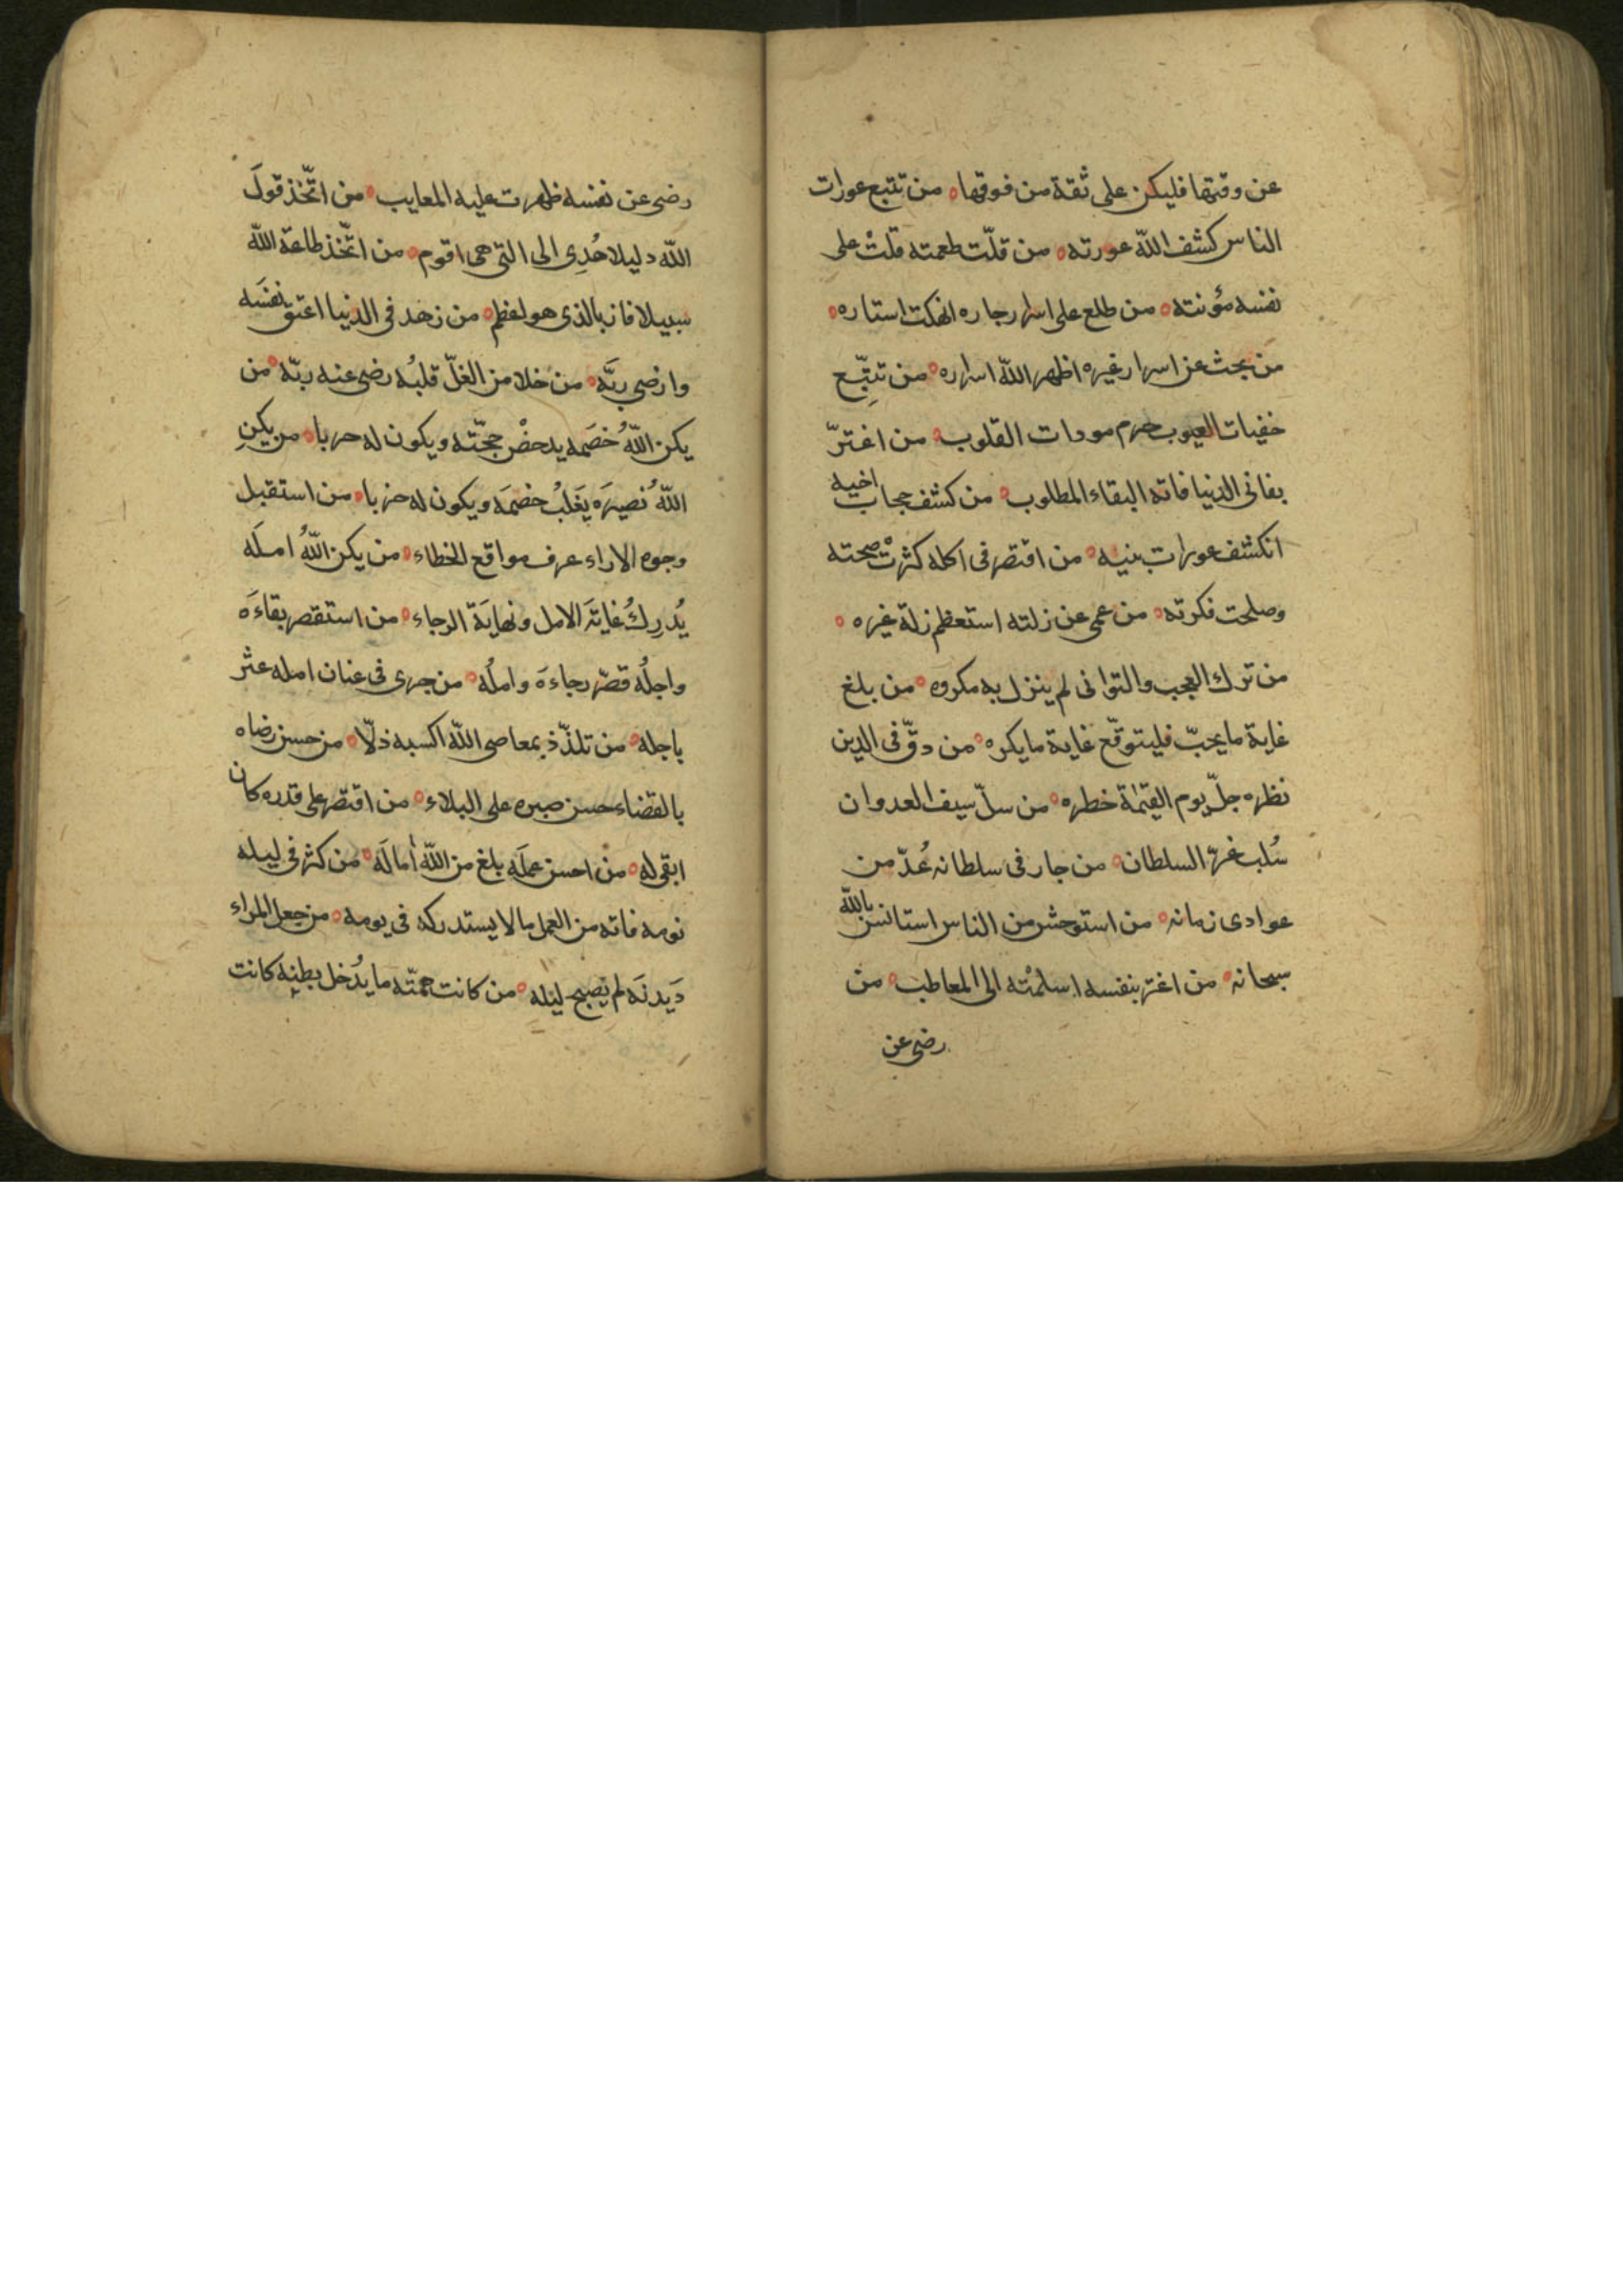 عن وقتها فليكن على ثقة من فوقها ه من تتبع عورات
الناس كشف الله عورته ه من قلّت طعمته قلتْ على
نفسه مؤنته ه من طلع على اسرار جاره انهكت استاره ه
من بحث عن اسرار غيره اظهر الله اسراره ه من تتبّع
خفيات العيوب حرم مودات القلوب ه من اغترّ
بفانى الدنيا فاته البقاء المطلوب ه من كشف حجاب اخيه
انكشف عورات بنيه ه من اقتصر فى اكله كثرتْ صحته
وصلحت فكرته ه من عمى عن زلته استعظم زلة غيره ه
من ترك العجب والتوانى لم ينزل به مكروه ه من بلغ
غاية ما يحبّ فليتوقّع غاية ما يكره ه من دقّ فى الدين
نظره جلّ يوم القيٰمة خطره ه من سلّ سيف العدوان
سُلب عزّ السلطان ه من جار فى سلطانه عُدّ من
عوادى زمانه ه من استوحش من الناس استانس بالله
سبحانه ه من اغتر بنفسه اسلمْته الى المعاطب ه من
رضى عن
رضى عن نفسه ظهرت عليه المعايب ه من اتّخذ قولَ
الله دليلا هُدِى الى التى هى اقوم ه من اتّخذ طاعة الله
سبيلا فاز بالذى هو اعظم ه من زهد فى الدنيا اعتق نفسَه
وارضى ربَّه ه من خلا من الغلّ قلبُه رضى عنه ربّه ه من
يكن اللهُ خصَمه يدحضْ حجّته ويكون له حربا ه من يكنِ
اللهُ نصيرَه يَغلبُ خصمَه ويكون له حزبا ه من استقبل
وجوه الاراء عرف مواقع الخطاء ه من يكن اللهُ املَه
يُدرِكُ غايةَ الامل ونهايَة الرجاء ه من استقصر بقاءَه
واجلُه قصّر رجاءَه واملُه ه من جرى فى عنان امله عثر
باجله ه من تلذّذ بمعاصى الله اكسبه ذلّا ه من حسن رضاه
بالقضاء حسن صبره على البلاء ه من اقتصر على قدره كان
ابقى له ه من احسن عملَه بلغ من الله اٰمالَه ه من كثر فى ليله
نومه فاته من العمل ما لا يستدركه فى يومه ه من جعل المراء
دَيدنَه لم يصبح ليله ه من كانت همّته ما يُدخل بطنِه كانت